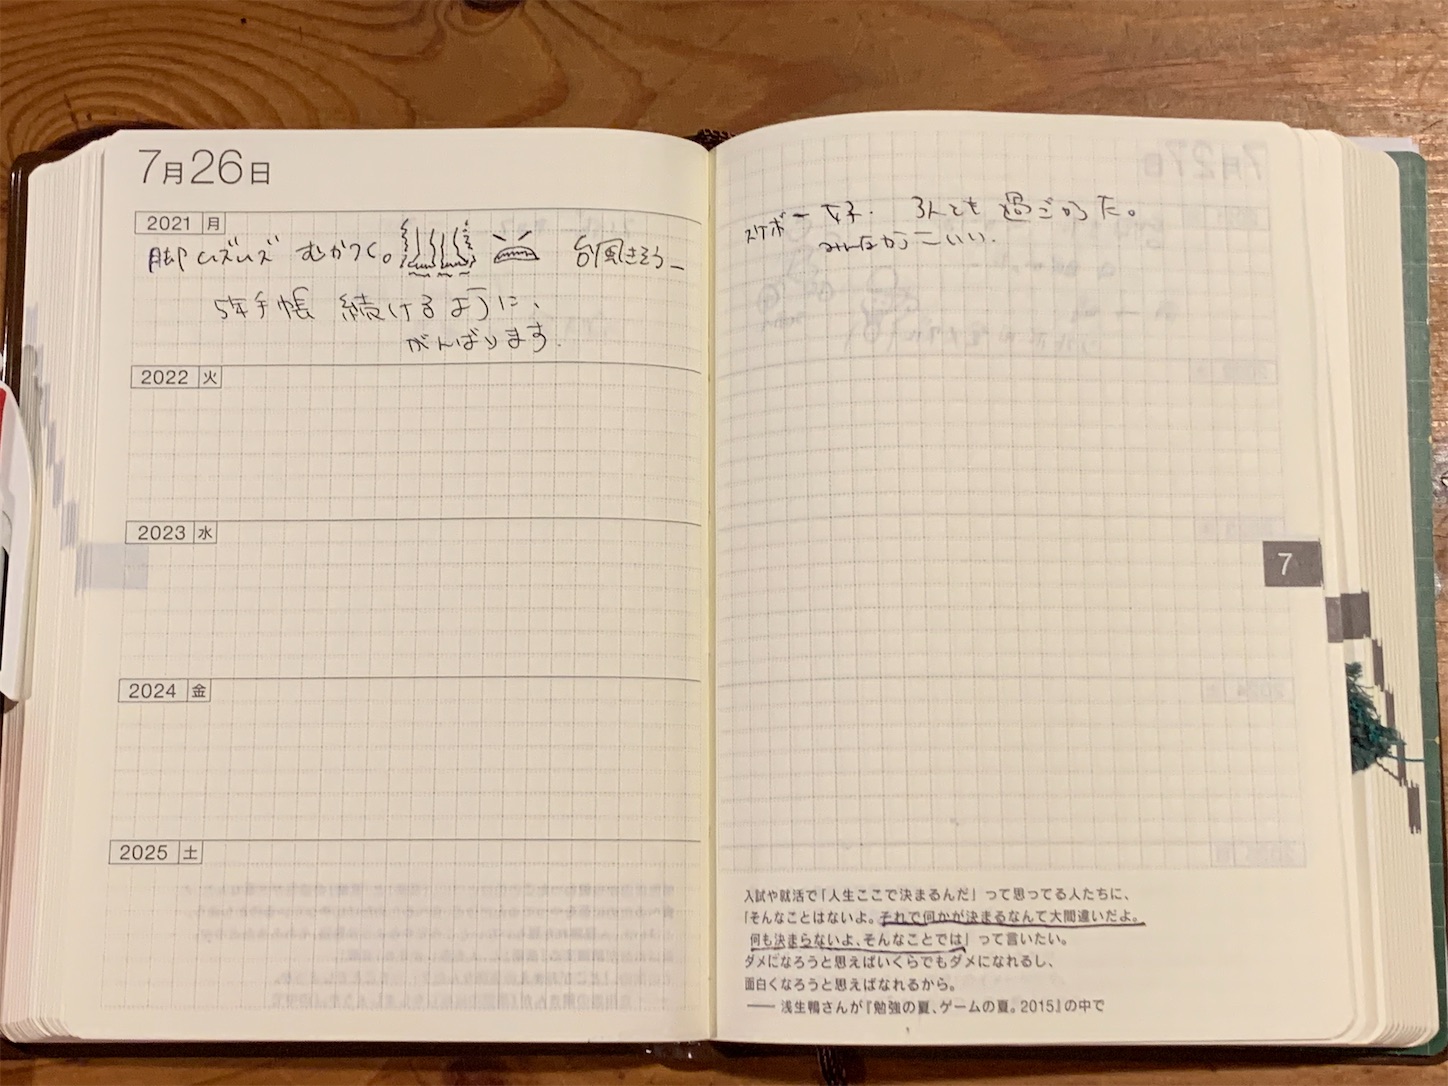 7月26日
2021 月
脚ムズムズ むかつく。 台風きそうー
5年手帳 続けるように、
がんばります。
2022 火
2023 水
2024 金
2025 土
スケボー 女子. 3人とも 過ごめた。
みんなかっこいい.
7
入試や就活で「人生ここで決まるんだ」って思ってる人たちに、
「そんなことはないよ。それで何かが決まるなんて大間違いだよ。
何も決まらないよ、そんなことでは」って言いたい。
ダメになろうと思えばいくらでもダメになれるし、
面白くなろうと思えばなれるから。
── 浅生鴨さんが『勉強の夏、ゲームの夏。2015』の中で